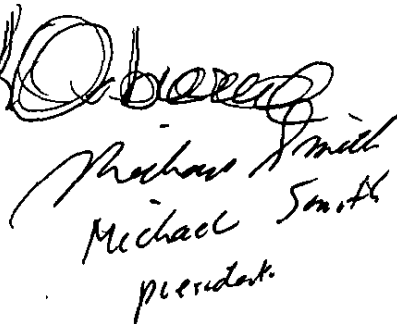 Michael Smith
Michael Smith
president.